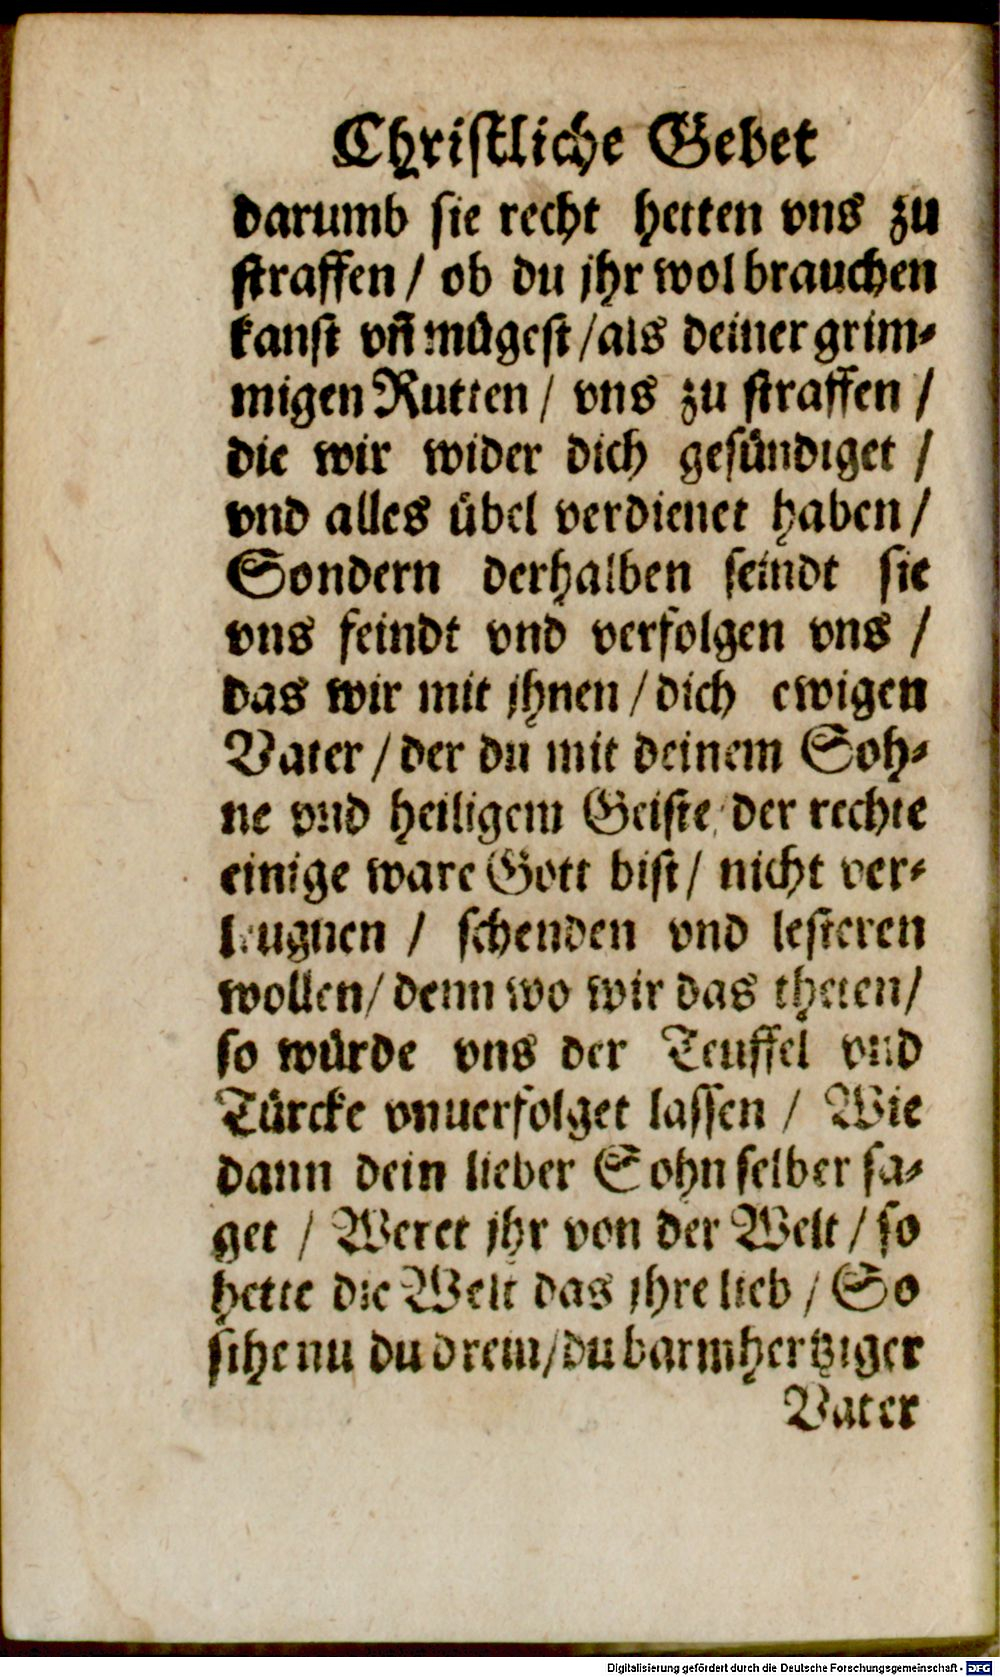 Chriſtliche Gebet
darumb ſie recht hetten vns zu
ſtraffen / ob du jhr wol brauchen
kanſt vn̄ mügeſt / als deiner grim⸗
migen Rutten / vns zu ſtraffen /
die wir wider dich geſündiget /
vnd alles übel verdienet haben /
Sondern derhalben ſeindt ſie
vns feindt vnd verfolgen vns /
das wir mit jhnen / dich ewigen
Vater / der du mit deinem Soh⸗
ne vnd heiligem Geiſte / der rechte
einige ware Gott biſt / nicht ver⸗
leugnen / ſchenden vnd leſteren
wollen / denn wo wir das theten /
ſo würde vns der Teuffel vnd
Türcke vnuerfolget laſſen / Wie
dann dein lieber Sohn ſelber ſa⸗
get / Weret jhr von der Welt / ſo
hette die Welt das jhre lieb / So
ſihe nu du drein / du barmhertziger
Vater
Digitalisierung gefördert durch die Deutsche Forschungsgemeinschaft - DFG